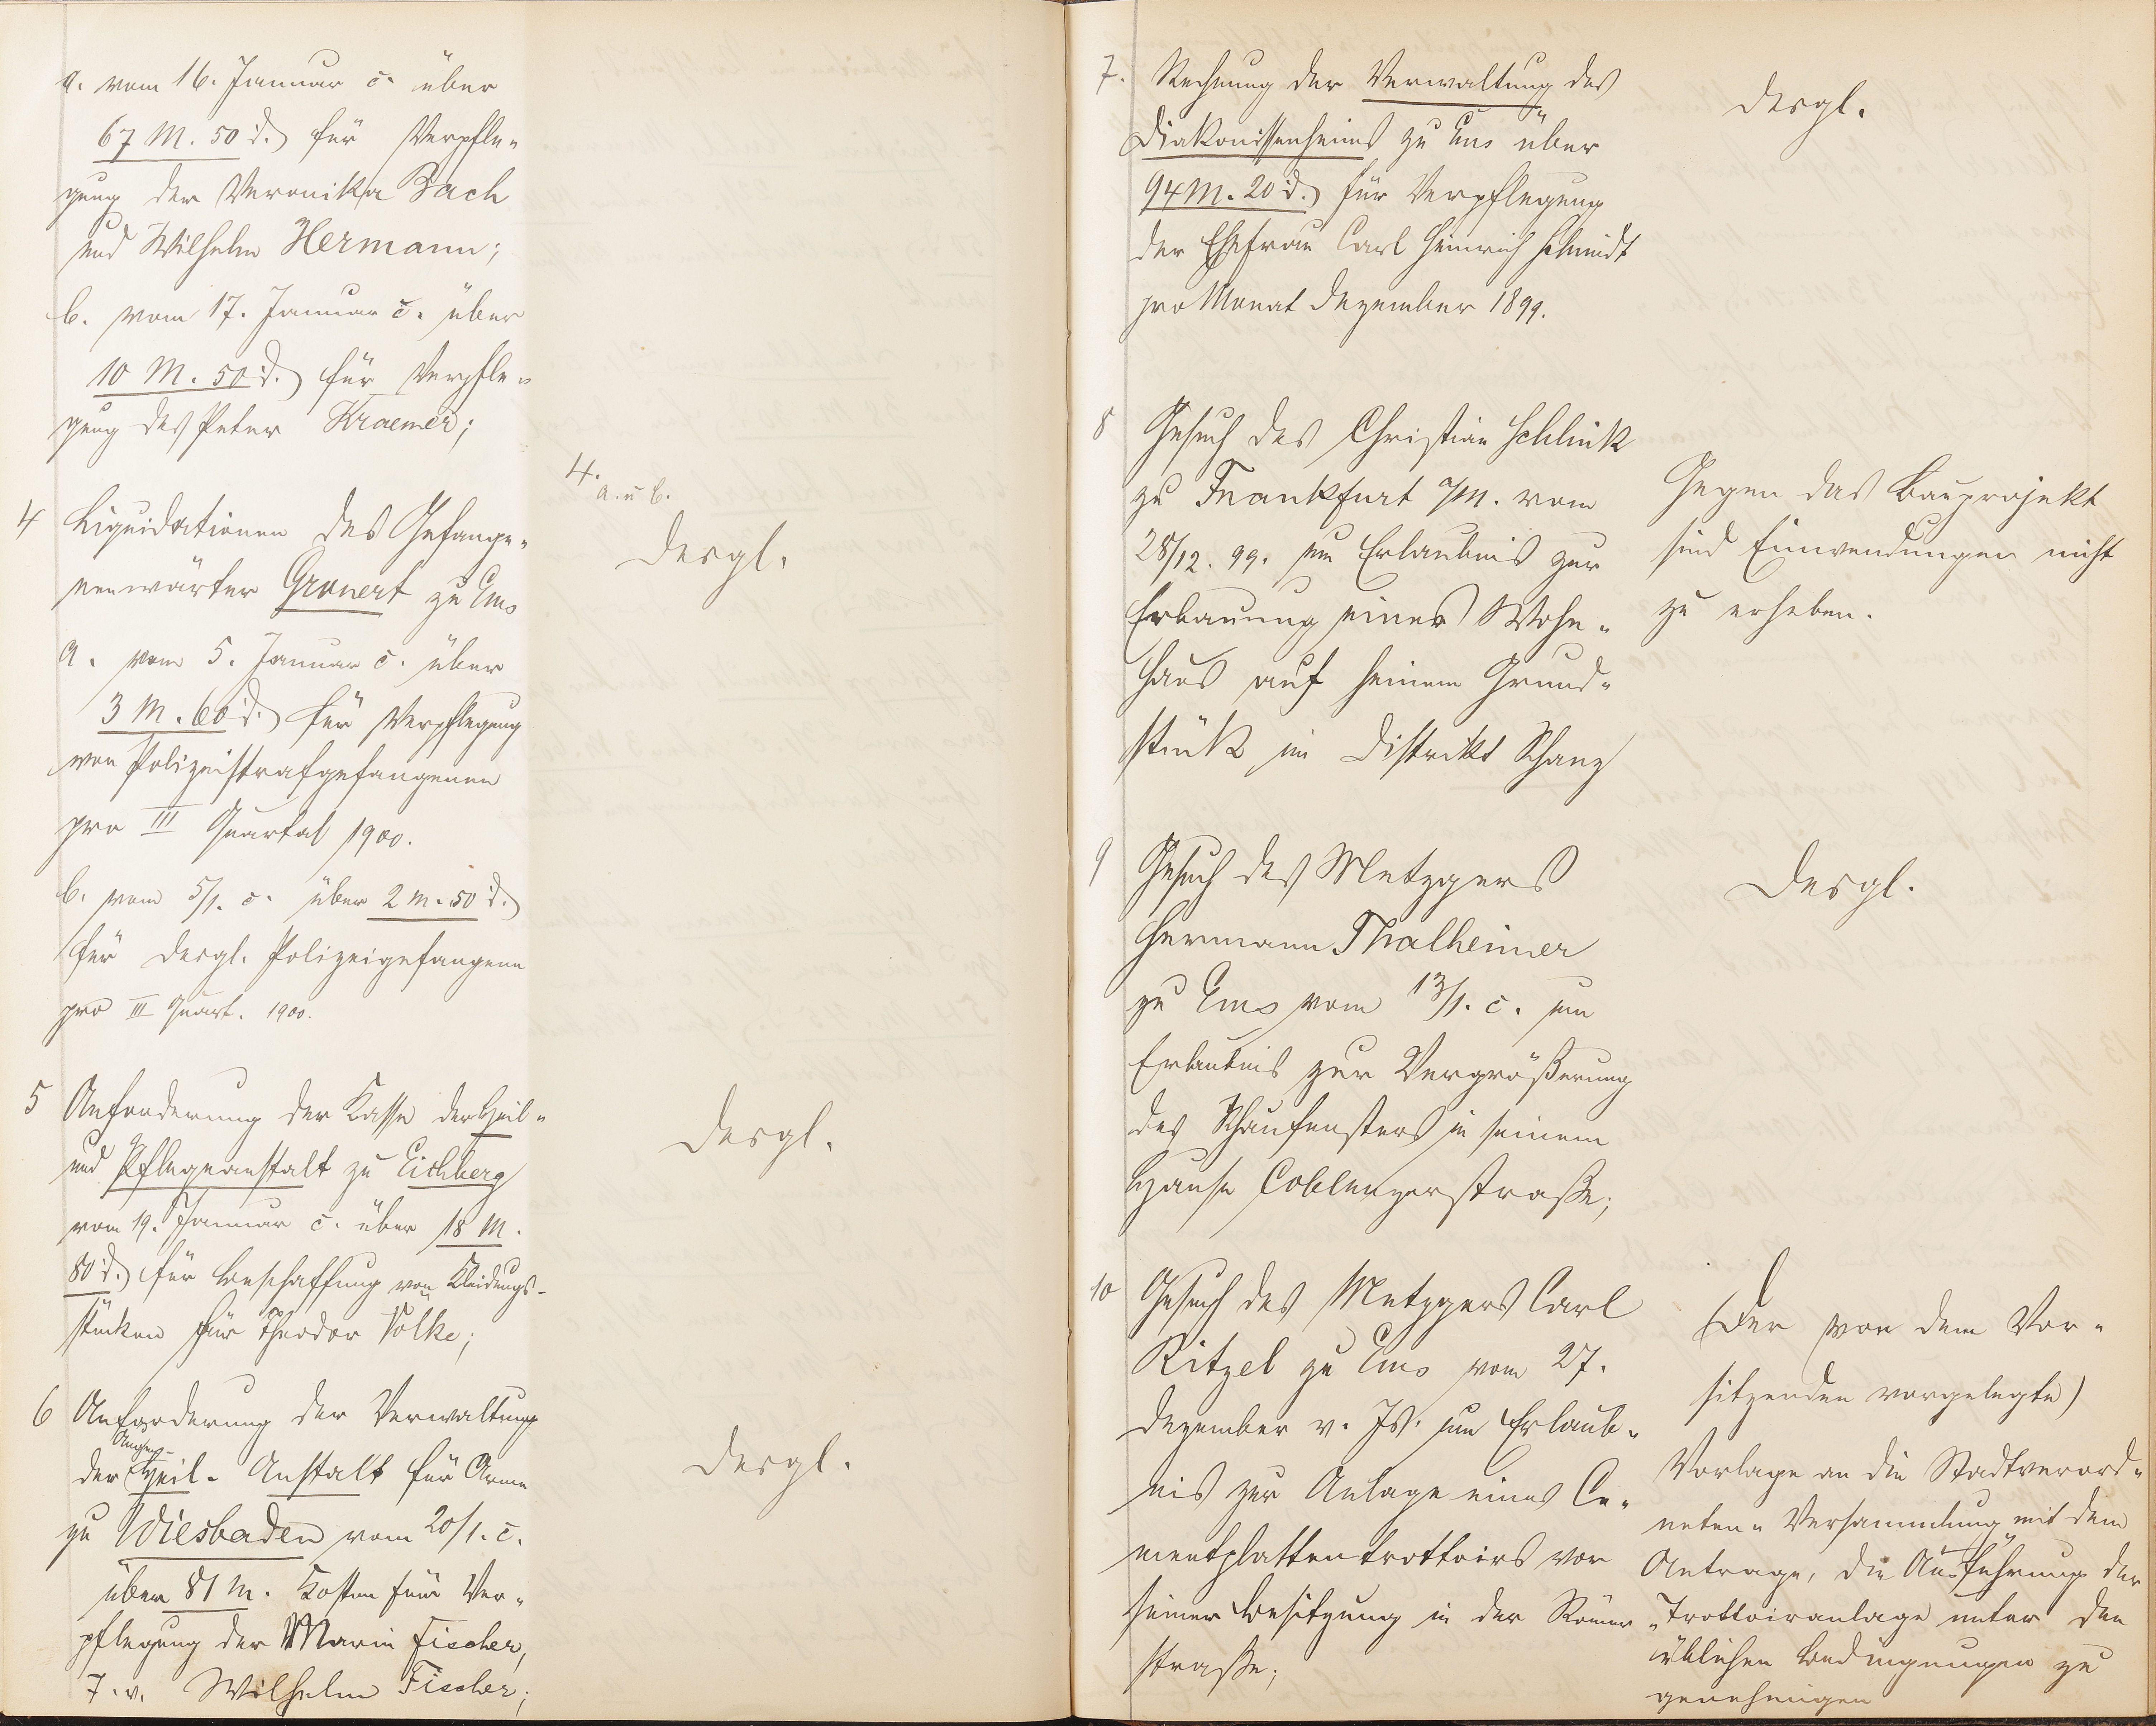 a. vom 16. Januar c. über
67 M. 50 d. für Verpfle-
gung der Veronika Bach
und Wilhelm Hermann;
b. vom 17. Januar c. über
10 M. 50 d. für Verpfle-
gung des Peter Kraemer;
4 Liquidationen des Gefange-
nenwärter Gronert zu Ems
a. vom 5. Januar c. über
3 M. 60 d. für Verpflegung
von Polizeistrafgefangenen
pro III Quartal 1900.
b. vom 5/1. c. über 2 M. 50 d.
für desgl. Polizeigefangene
pro III Quart. 1900.
4.
a. u b.
desgl.
5 Anforderung der Kasse der Heil-
und Pflegeanstalt zu Eichberg
vom 19. Januar c. über 18 M.
80 d. für Beschaffung von Kleidungs-
stücken für Theodor Volke;
desgl.
6 Anforderung der Verwaltung
der Augen-Heil-Anstalt für Arme
zu Wiesbaden vom 20/1. c.
über 81 M. Kosten für Ver-
pflegung der Marie Fischer,
T. v. Wilhelm Fischer;
desgl.
7. Rechnung der Verwaltung des
Diakonissenheims zu Ems über
94 M. 20 d. für Verpflegung
der Ehefrau Carl Heinrich Schmidt
pro Monat Dezember 1899.
desgl.
8 Gesuch des Christian Schlink
zu Frankfurt a/M. vom
28/12. 99. um Erlaubnis zur
Erbauung eines Wohn-
haus auf seinem Grund-
stück im Distrikt Schanz
Gegen das Bauprojekt
sind Einwendungen nicht
zu erheben.
9 Gesuch des Metzgers
Hermann Thalheimer
zu Ems vom 13/1. c. um
Erlaubnis zur Vergrößerung
des Schaufensters in seinem
Hause Coblenzerstraße;
desgl.
10 Gesuch des Metzgers Carl
Ritzel zu Ems vom 27.
Dezember v. Js. um Erlaub-
nis zur Anlage eines Ce-
mentplattentrottoirs vor
seiner Besitzung in der Römer-
straße;
(Der von dem Vor-
sitzenden vorgelegte)
Vorlage an die Stadtverord-
neten-Versammlung mit dem
Antrage, die Ausführung der
Trottoiranlage unter den
üblichen Bedingungen zu
genehmigen